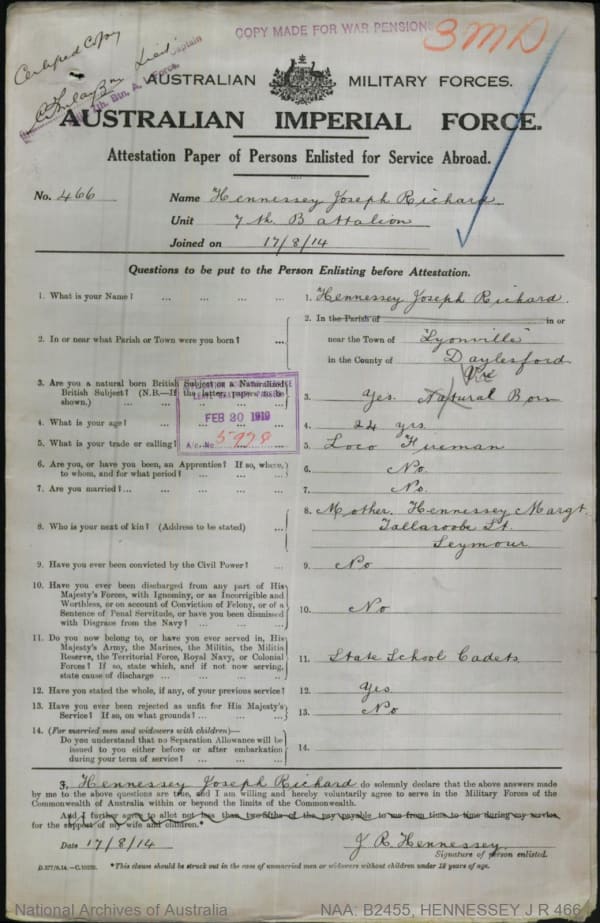 COPY MADE FOR WAR PENSION
Certified Copy
3MD
7th. Btn. A. I. Force.
AUSTRALIAN MILITARY FORCES.
AUSTRALIAN IMPERIAL FORCE.
Attestation Paper of Persons Enlisted for Service Abroad.
No. 466 Name Hennessey Joseph Richard
Unit 7th Battalion
Joined on 17/8/14
Questions to be put to the Person Enlisting before Attestation.
1. What is your Name? ... ... ... ... 1. Hennessey Joseph Richard.
2. In or near what Parish or Town were you born? ... 2. In the Parish of in or
near the Town of "Lyonville"
in the County of Daylesford
Vic
3. Are you a natural born British Subject or a Naturalized
British Subject? (N.B.—If the latter, papers to be
shown.) ... ... 3. Yes. Natural Born
FEB 20 1919
A/C. No 5978
4. What is your age? ... 4. 24 yrs.
5. What is your trade or calling? 5. Loco Fireman
6. Are you, or have you been, an Apprentice? If so, where,
to whom, and for what period? ... 6. No.
7. Are you married? ... ... 7. No.
8. Who is your next of kin? (Address to be stated) ... 8. Mother. Hennessey Margt.
Tallaroobe St.
Seymour
9. Have you ever been convicted by the Civil Power? ... 9. No
10. Have you ever been discharged from any part of His
Majesty's Forces, with Ignominy, or as Incorrigible and
Worthless, or on account of Conviction of Felony, or of a
Sentence of Penal Servitude, or have you been dismissed
with Disgrace from the Navy? ... 10. No
11. Do you now belong to, or have you ever served in, His
Majesty's Army, the Marines, the Militia, the Militia
Reserve, the Territorial Force, Royal Navy, or Colonial
Forces? If so, state which, and if not now serving,
state cause of discharge ... 11. State School Cadets
12. Have you stated the whole, if any, of your previous service? 12. Yes
13. Have you ever been rejected as unfit for His Majesty's
Service? If so, on what grounds? ... 13. No
14. (For married men and widowers with children)—
Do you understand that no Separation Allowance will be
issued to you either before or after embarkation
during your term of service? ... 14.
I, Hennessey Joseph Richard do solemnly declare that the above answers made
by me to the above questions are true, and I am willing and hereby voluntarily agree to serve in the Military Forces of the
Commonwealth of Australia within or beyond the limits of the Commonwealth.
And I further agree to allot not less than two-fifths of the pay payable to me from time to time during my service
for the support of my wife and children.*
Date 17/8/14 J. R. Hennessey.
Signature of person enlisted.
*This clause should be struck out in the case of unmarried men or widowers without children under 18 years of age.
National Archives of Australia NAA: B2455, HENNESSEY J R 466